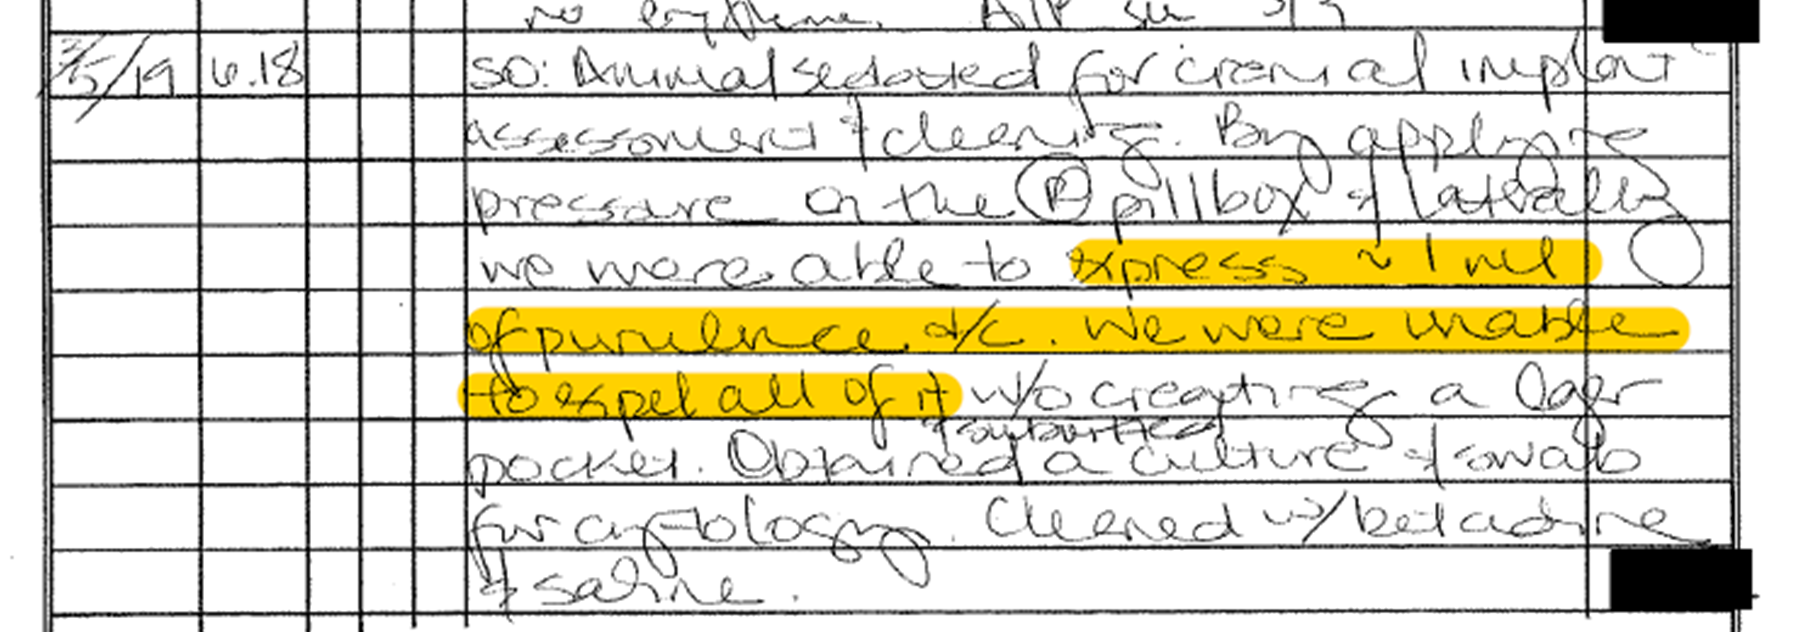 no erythema. A/P see 3/3
3/5/19 6.18 SO: Animal sedated for cranial implant
assessment & cleaning. By applying
pressure on the Ⓡ pillbox & laterally
we were able to express ~ 1 ml
of purulence d/c. We were unable
to expel all of it w/o creating a lager
& submitted
pocket. Obtained a culture & swab
for cytology. Cleaned w/ betadine
& saline.